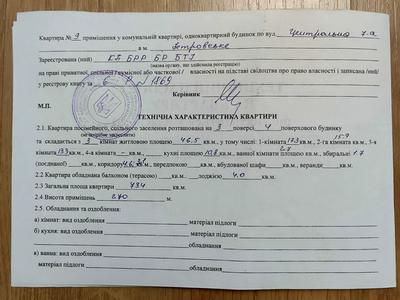 Квартира № 9 приміщення у комунальній квартирі, одноквартирний будинок по вул. Центральна 7-а
в м. Петровське
Зареєстрований (ний) КП БРР БР БТІ
(назва органу, що здійснив реєстрацію)
на праві приватної, спільної / сумісної або часткової / власності на підставі свідоцтва про право власності і записана /ний/
у реєстрову книгу за 6 Р № 1369
Керівник
М.П.
ТЕХНІЧНА ХАРАКТЕРИСТИКА КВАРТИРИ
2.1. Квартира посімейного, спільного заселення розташована на 3 поверсі 4 поверхового будинку
(не потрібне закреслити)
та складається з 3 кімнат житловою площею 46.5 кв.м, у тому числі: 1-кімната 17.3 кв.м, 2-га кімната 15.9 кв.м, 3-тя
кімната 13.3 кв.м, 4-а кімната – кв.м, кухні площею 10.8 кв.м, ванної кімнати площею 2.7 кв.м, вбиральні 1.7
(поєднаної) кв.м, коридору кв.м., передпокою кв.м, вбудованої шафи кв.м, веранди кв.м.
2.2 Квартира обладнана балконом (терасою) кв.м, лоджією 4.0 кв.м.
2.3 Загальна площа квартири 73.4 кв.м.
2.4 Висота приміщень 2.70 м.
2.5. Обладнання та оздоблення:
а) кімнат: вид оздоблення матеріал підлоги
б) кухні: вид оздоблення матеріал підлоги
обладнання
в) ванна: вид оздоблення матеріал підлоги
обладнання